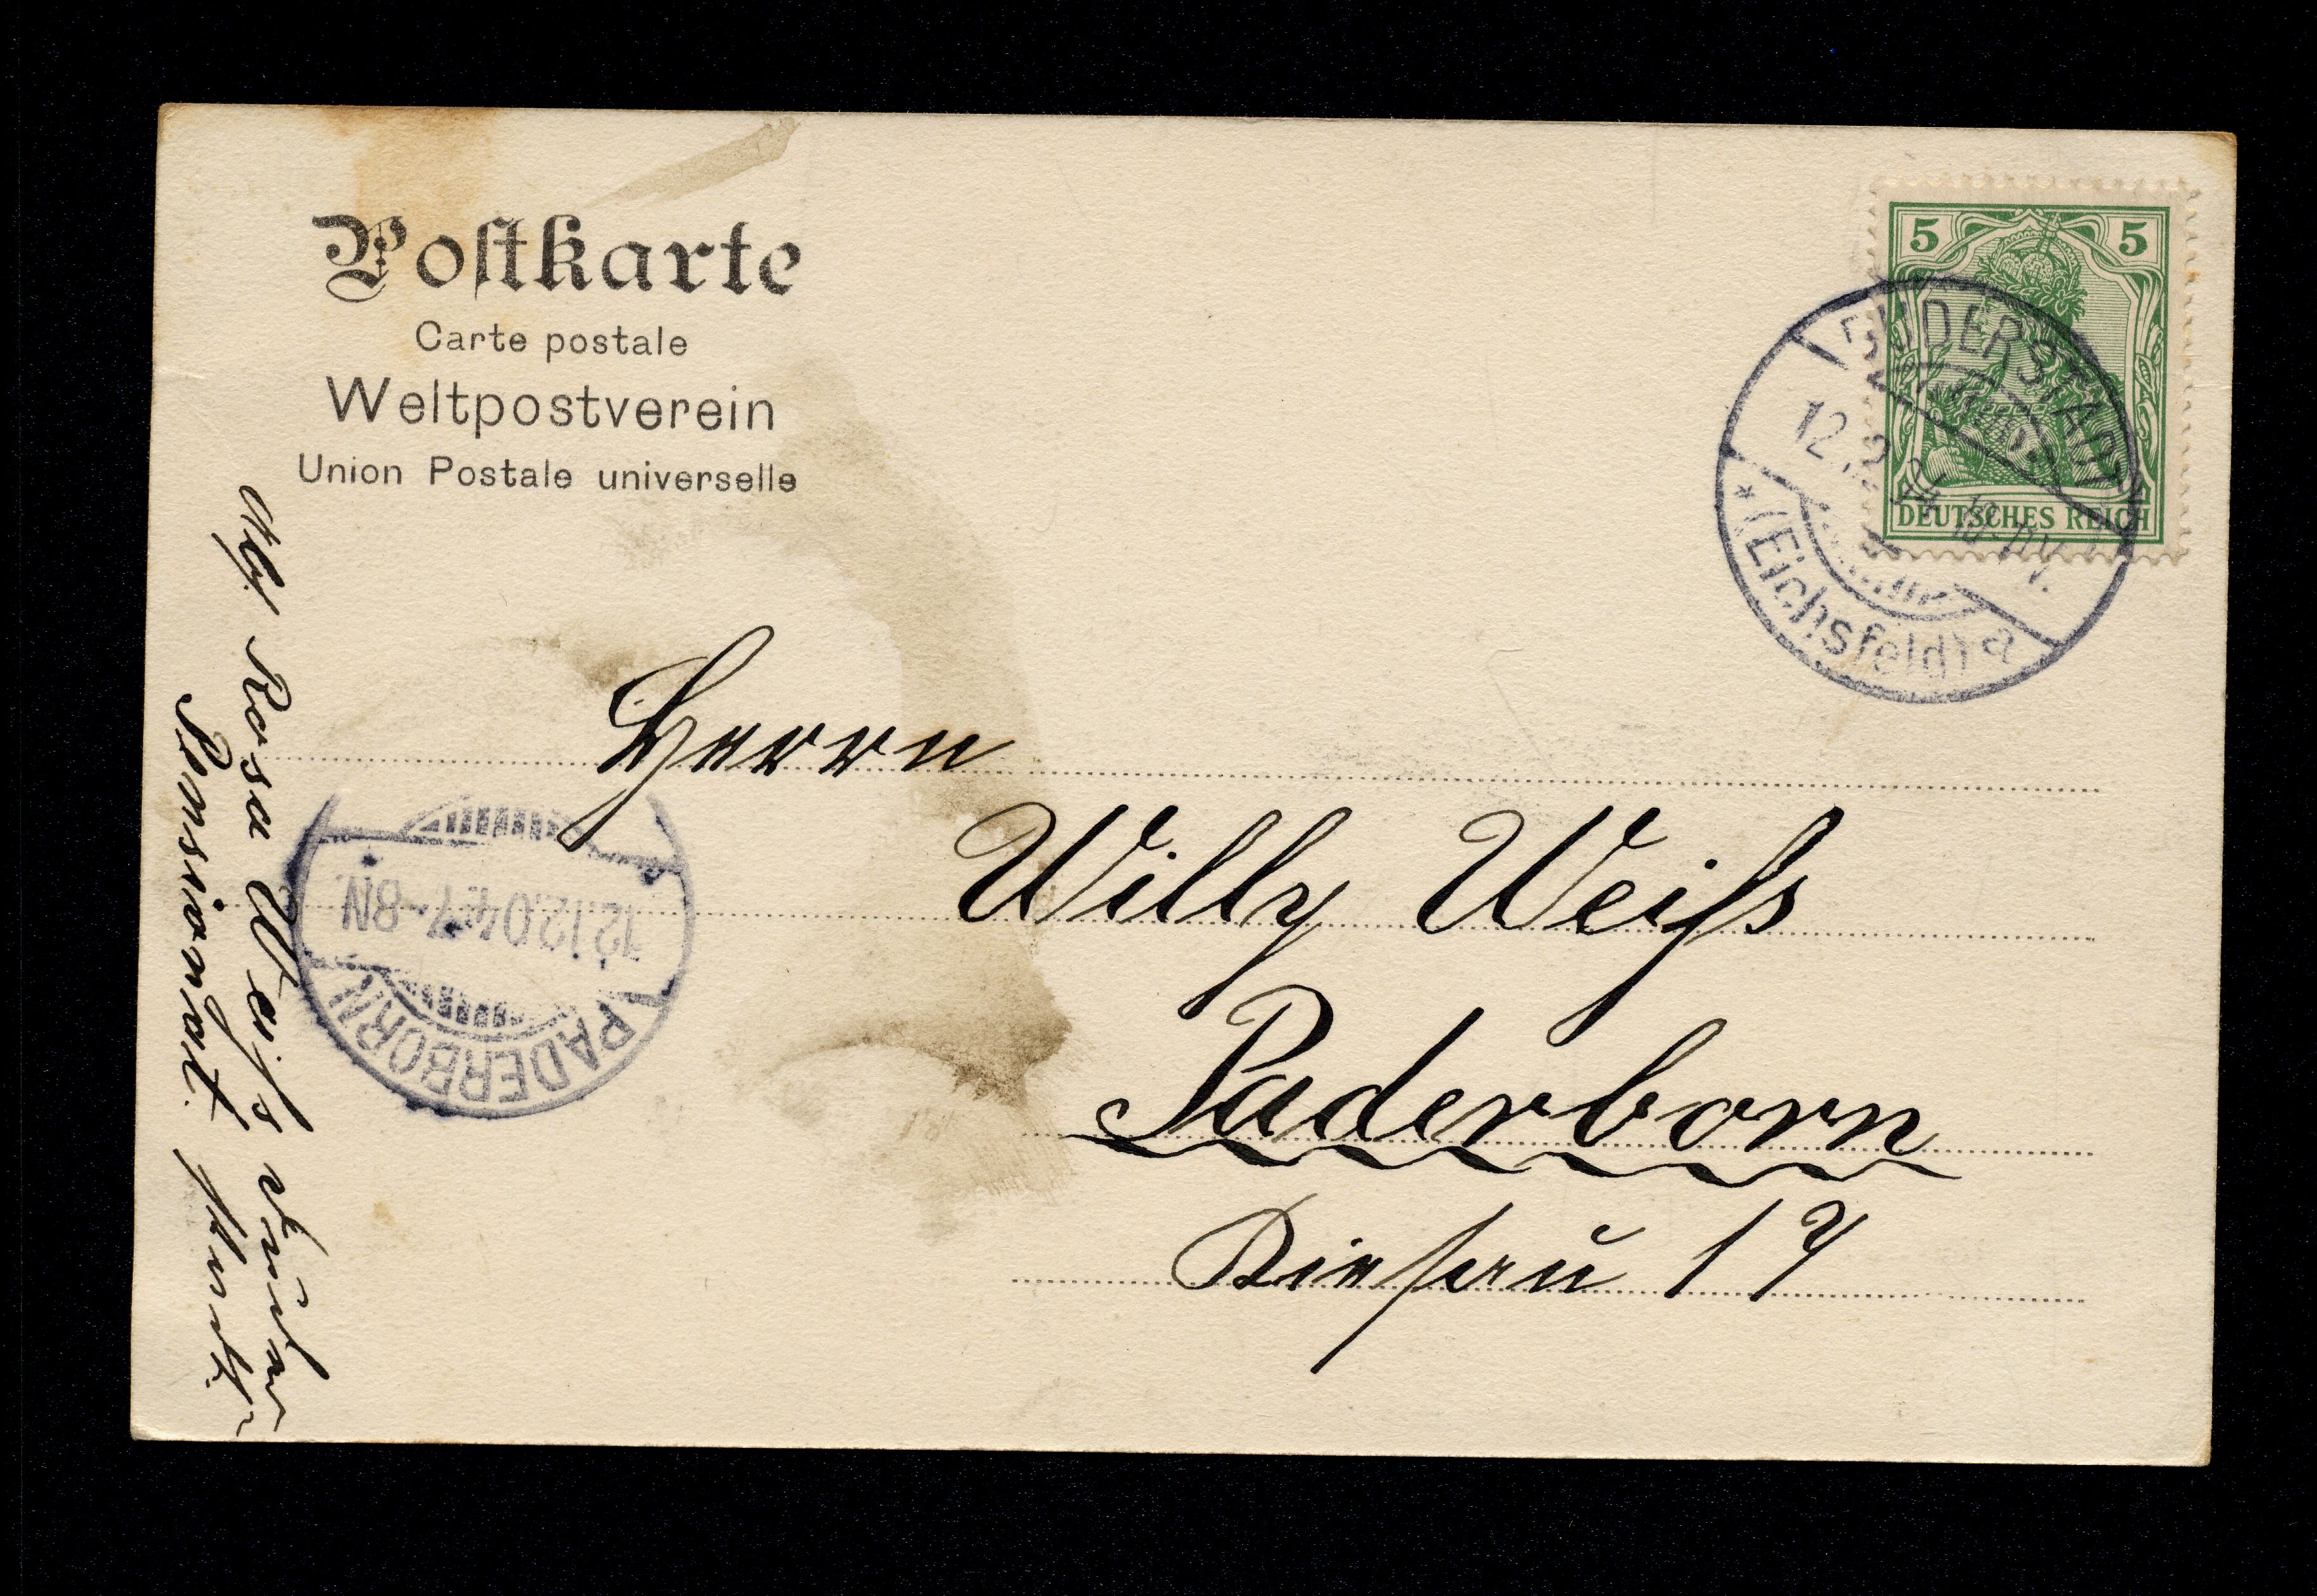 Postkarte
Carte postale
Weltpostverein
Union Postale universelle
5 5
DEUTSCHES REICH
DUDERSTADT
12.12.04
*(Eichsfeld) a
Herrn
Willy Weiß
Paderborn
Kiesau 17
PADERBORN
12.12.04.7-8N.
Abs. Rosa Weiß
Pensionat